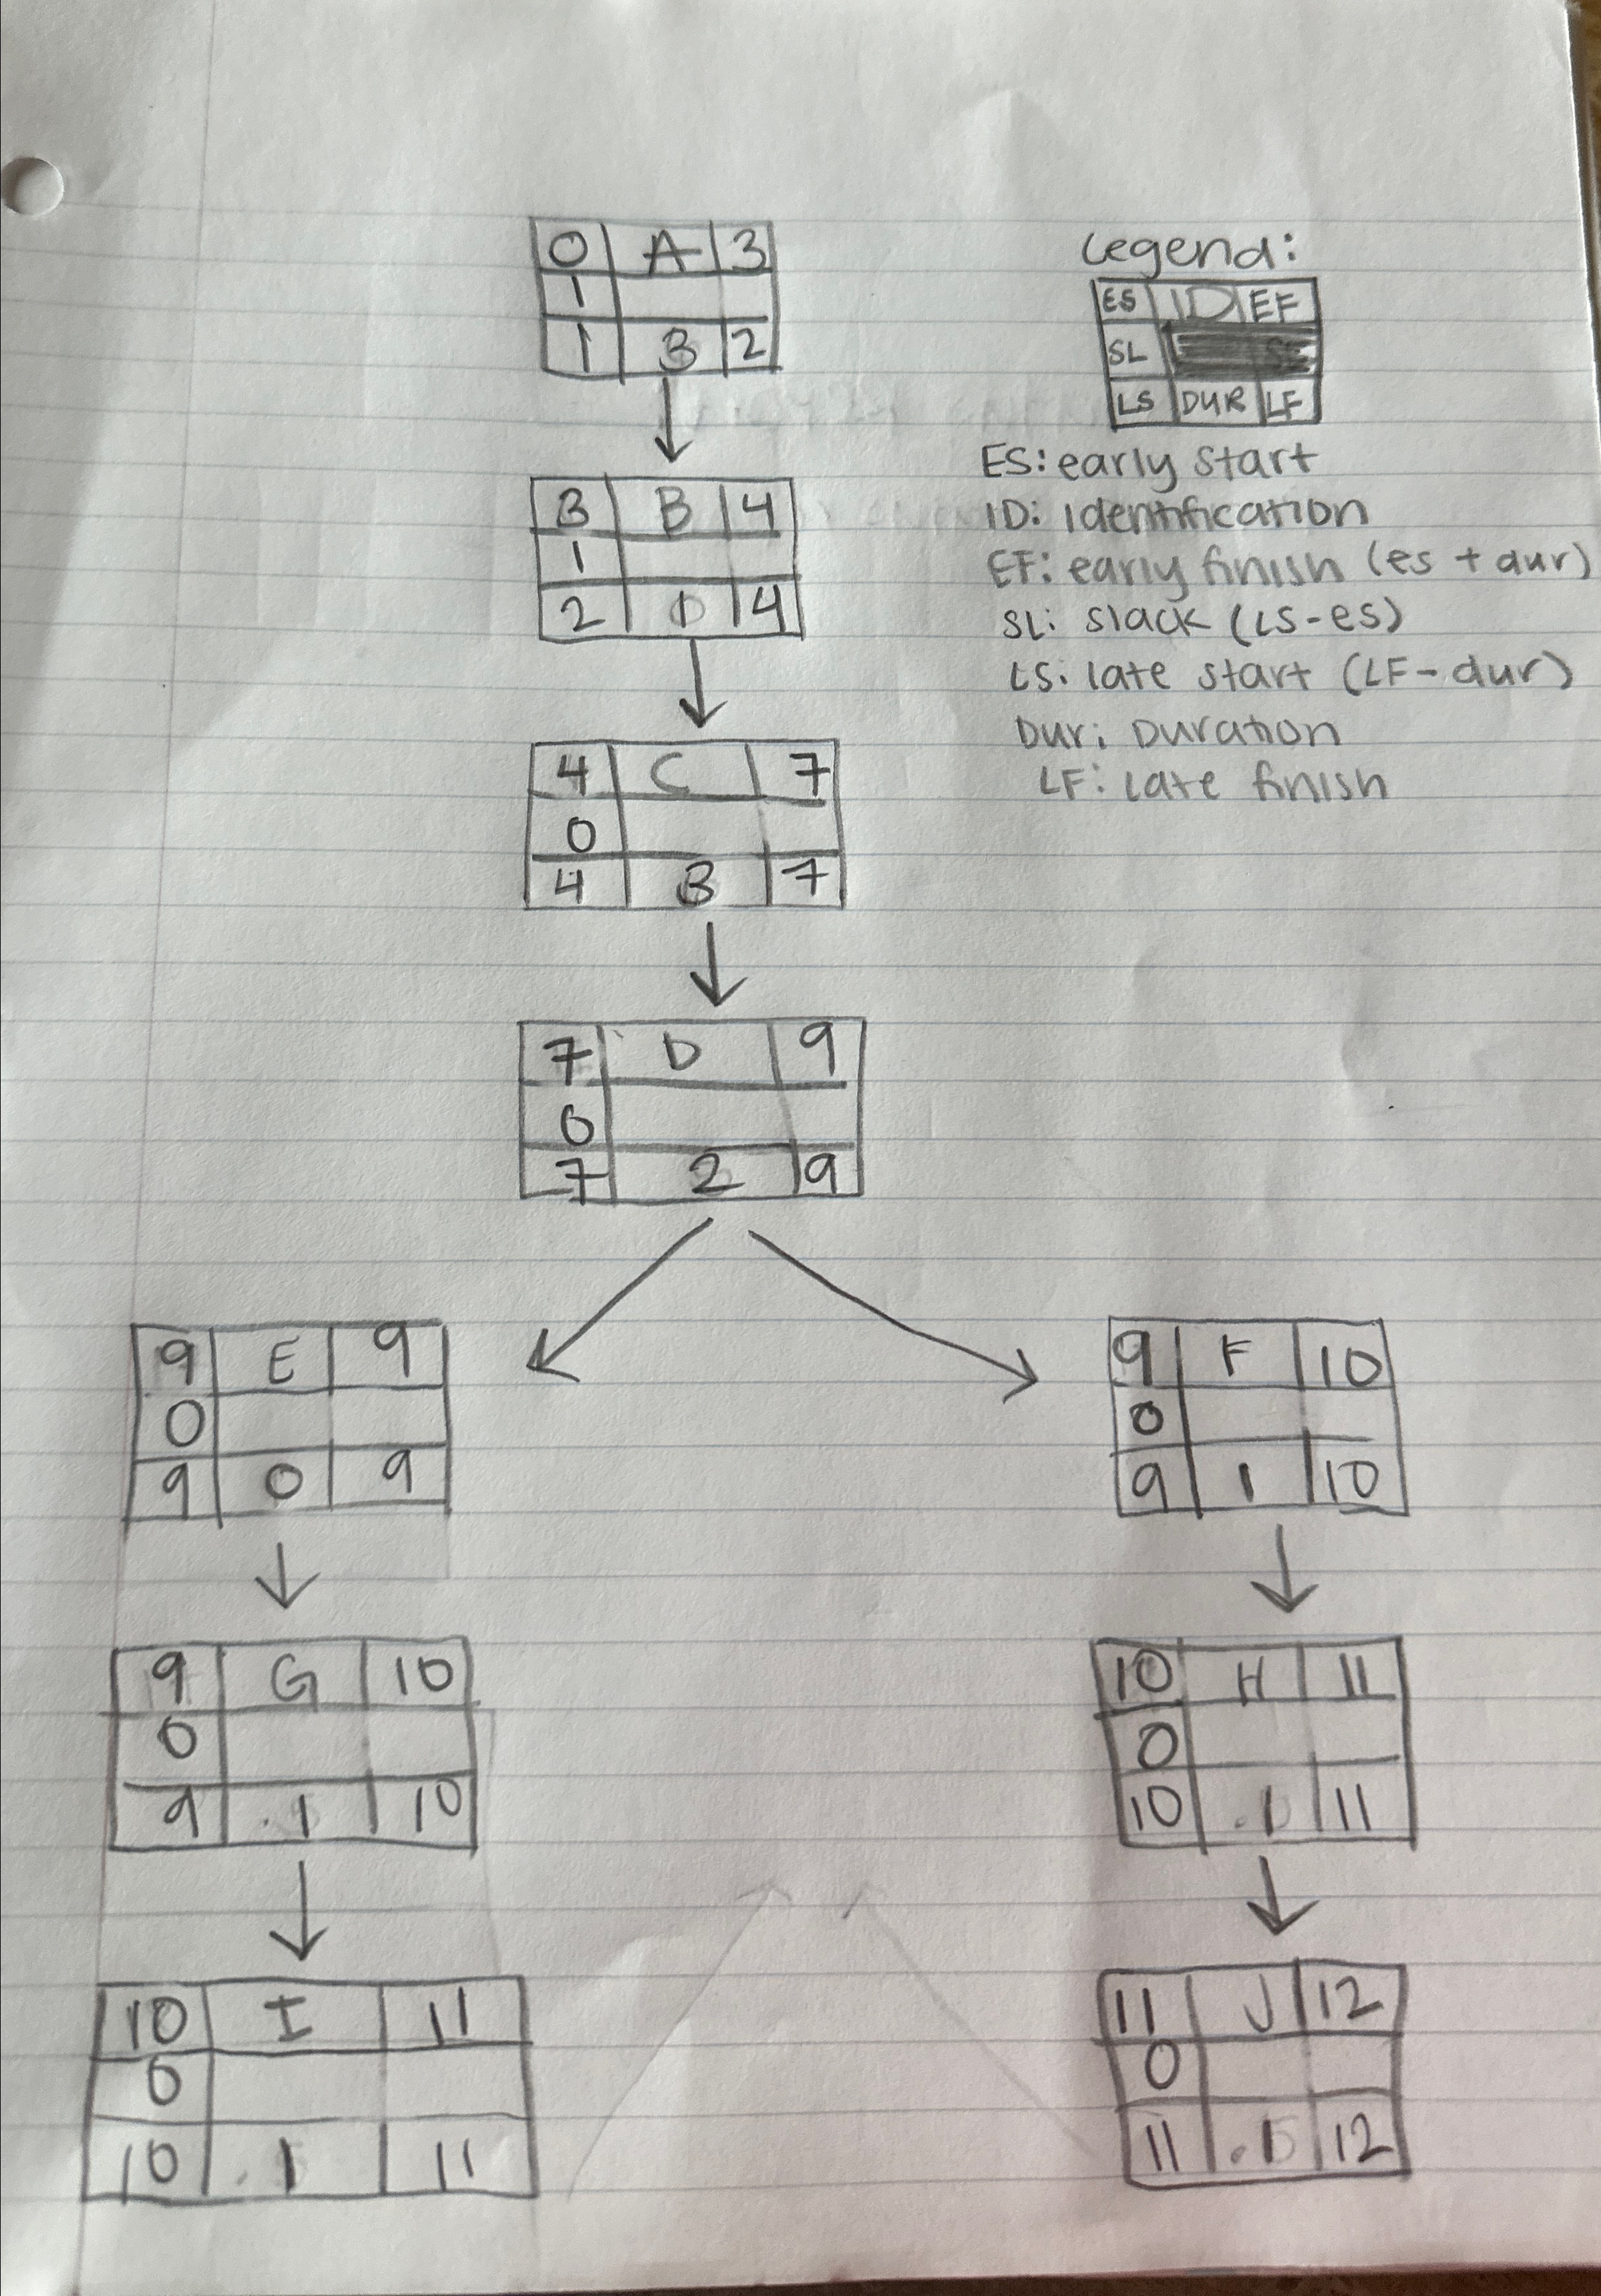 0 A 3
1
1 3 2
Legend:
ES ID EF
SL
LS DUR LF
ES: early start
ID: Identification
EF: early finish (es + dur)
SL: slack (LS-es)
LS: late start (LF-dur)
Dur: Duration
LF: late finish
3 B 4
1
2 1 4
4 C 7
0
4 3 7
7 D 9
0
7 2 9
9 E 9
0
9 0 9
9 F 10
0
9 1 10
9 G 10
0
9 .1 10
10 H 11
0
10 .1 11
10 I 11
0
10 .1 11
11 J 12
0
11 .1 12